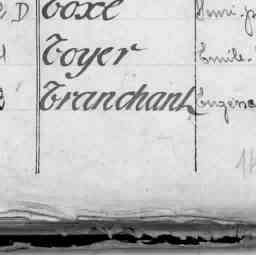 D Toxé Henri
Toyer Emile
Tranchant Eugène